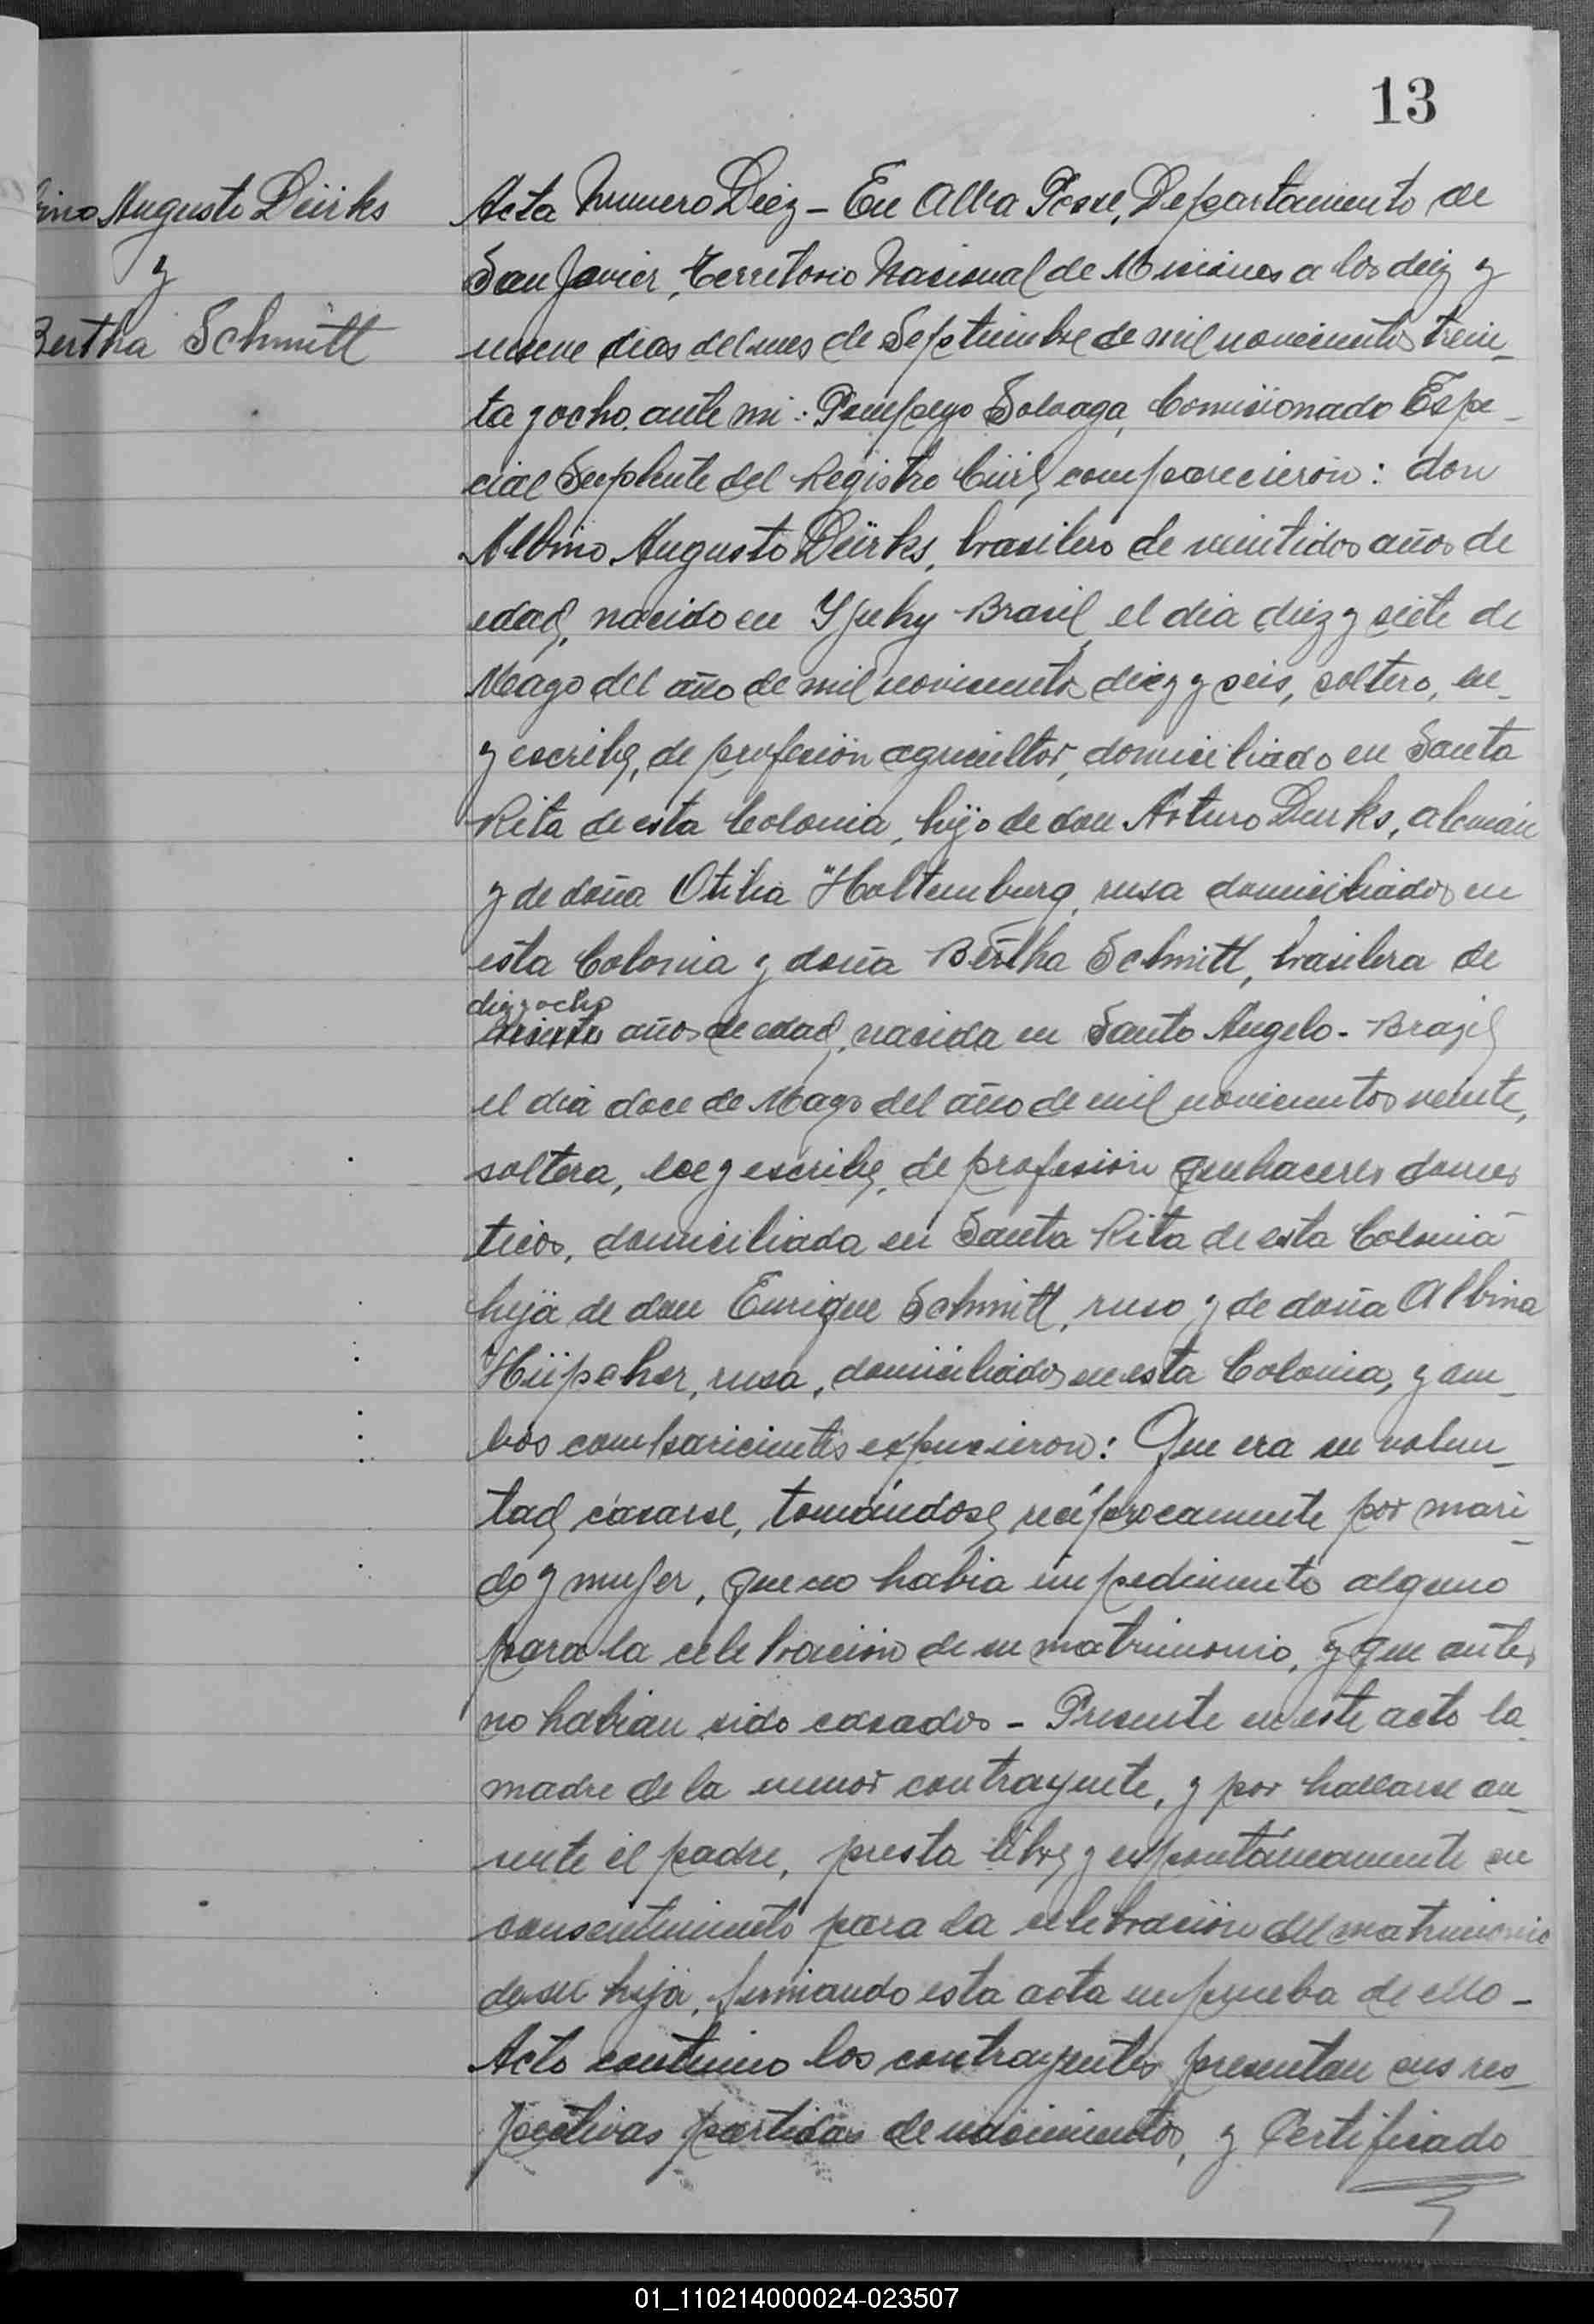 13
Augusto Düirks
y
Bertha Schmitt
Acta Numero Diez - En Alba Posse, Departamento de
San Javier, Territorio Nacional de Misiones a los diez y
nueve dias del mes de Septiembre de mil novecientos trein_
ta y ocho, ante mi: Pompeyo Soloaga, Comisionado Espe_
cial Suplente del Registro Civil, comparecieron: don
Albino Augusto Düirks, brasilero de veintidos años de
edad, nacido en Yjuhy - Brasil, el dia diez y siete de
Mayo del año de mil novecientos diez y seis, soltero, lee_
y escribe, de profesión agricultor, domiciliado en Santa
Rita de esta Colonia, hijo de don Arturo Durks, alemán
y de doña Otilia Holtemburg, rusa domiciliados en
esta Colonia y doña Bertha Schmitt, brasilera de
diez y ocho
años de edad, nacida en Santo Angelo - Brazil
el dia doce de Mayo del año de mil novecientos veinte,
soltera, lee y escribe, de profesión quehaceres domes
ticos, domiciliada en Santa Rita de esta Colonia
hija de don Enrique Schmitt, ruso, y de doña Albina
Hüpcher, rusa, domiciliados en esta Colonia, y am_
bos comparicientes expusieron: Que era su volun_
tad, casarse, tomándose, recíprocamente por mari_
do y mujer, que no habia impedimento alguno
para la celebración de su matrimonio, y que antes
no habian sido casados - Presente en este acto la
madre de la menor contrayente, y por hallarse au_
sente el padre, presta libre y espontáneamente su
consentimiento para la celebración del matrimonio
de su hija, firmando esta acta en prueba de ello -
Acto continuo los contrayentes presentan sus res_
pectivas partidas de nacimientos, y Certificado
01_110214000024-023507